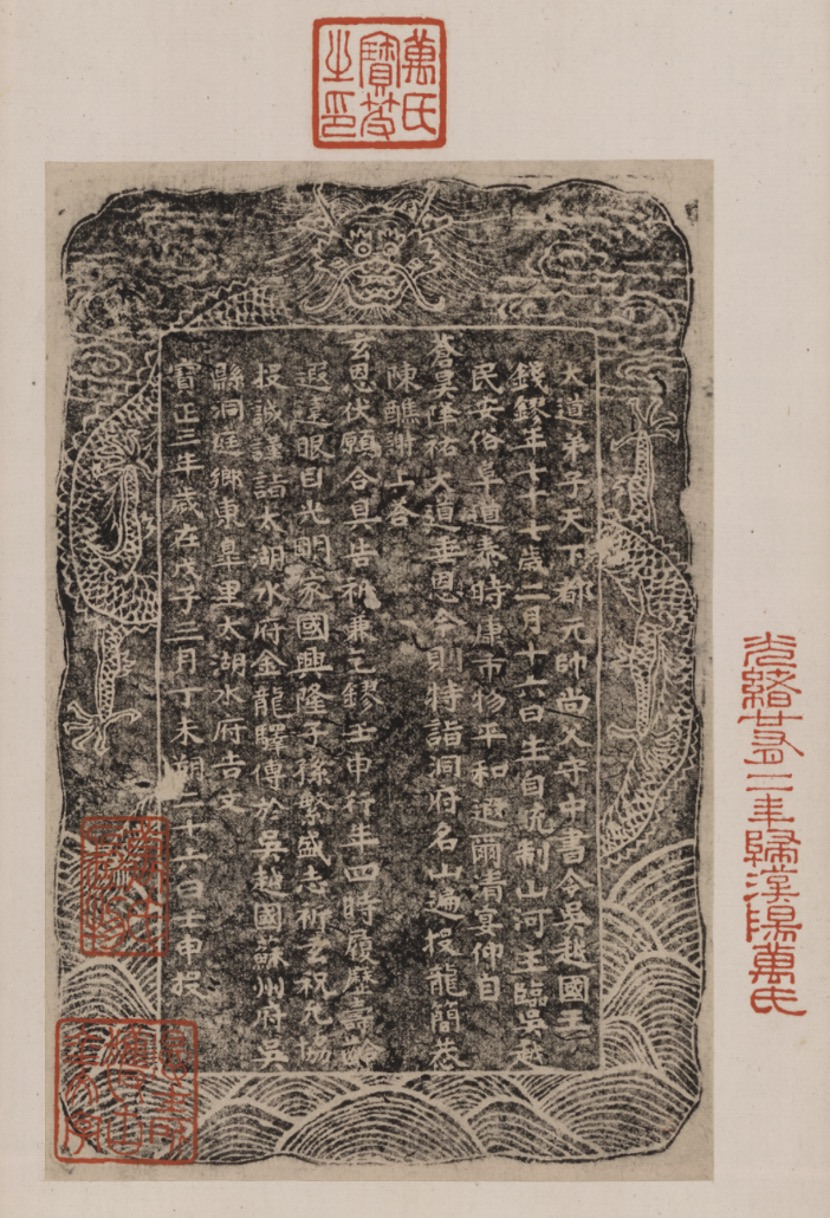 萬氏
寶芨
之印
大道弟子天下都元帥尚父守中書令吳越國王
錢鏐年七十七歲二月十六日生自統制山河主臨吳越
民安俗阜道泰時康市物平和遐爾清宴仰自
蒼昊降祐大道垂恩今則特詣洞府名山遍投龍簡恭
陳醮謝上荅
玄恩伏願合具告祈兼乞鏐壬申行年四時履歷壽齡
遐遠眼目光明家國興隆子孫繁盛志祈玄祝允協
投誠謹詣太湖水府金龍驛傳於吳越國蘇州府吳
縣洞庭鄉東皐里太湖水府告文
寶正三年歲在戊子三月丁未朔二十六日壬申投
光緒廿又二年歸漢陽萬氏